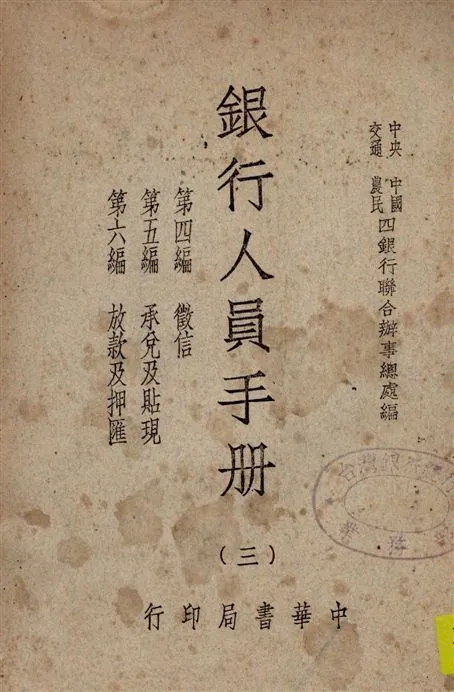 中央 中國
交通 農民 四銀行聯合辦事總處編
銀行人員手册
(三)
第四編 徵信
第五編 承兌及貼現
第六編 放款及押匯
中華書局印行
台灣銀